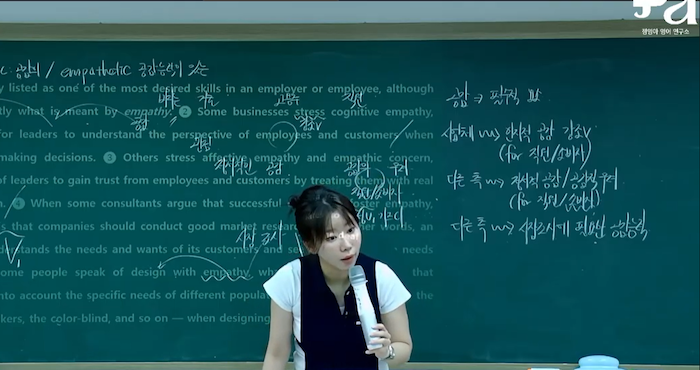 정승아 영어 연구소
공감의 / empathetic 공감능력이 있는
y listed as one of the most desired skills in an employer or employee, although
tly what is meant by empathy. ❷ Some businesses stress cognitive empathy,
for leaders to understand the perspective of employees and customers when
making decisions. ❸ Others stress affective empathy and empathic concern,
of leaders to gain trust from employees and customers by treating them with real
❹ When some consultants argue that successful foster empathy,
that companies should conduct good market resear
stands the needs and wants of its customers and se needs
ome people speak of design with empathy,
nto account the specific needs of different popula
kers, the color-blind, and so on — when designing
고용주
직원
공감
관점
정서적인 공감
공감적 우려
직원/소비자
시장 조사
공감 → 필수적
사업체 → 인지적 공감 강조
(for 직원/소비자)
다른 쪽 → 정서적 공감/공감적 우려
(for 직원/소비자)
다른 쪽 → 시장조사에 필요한 공감능력